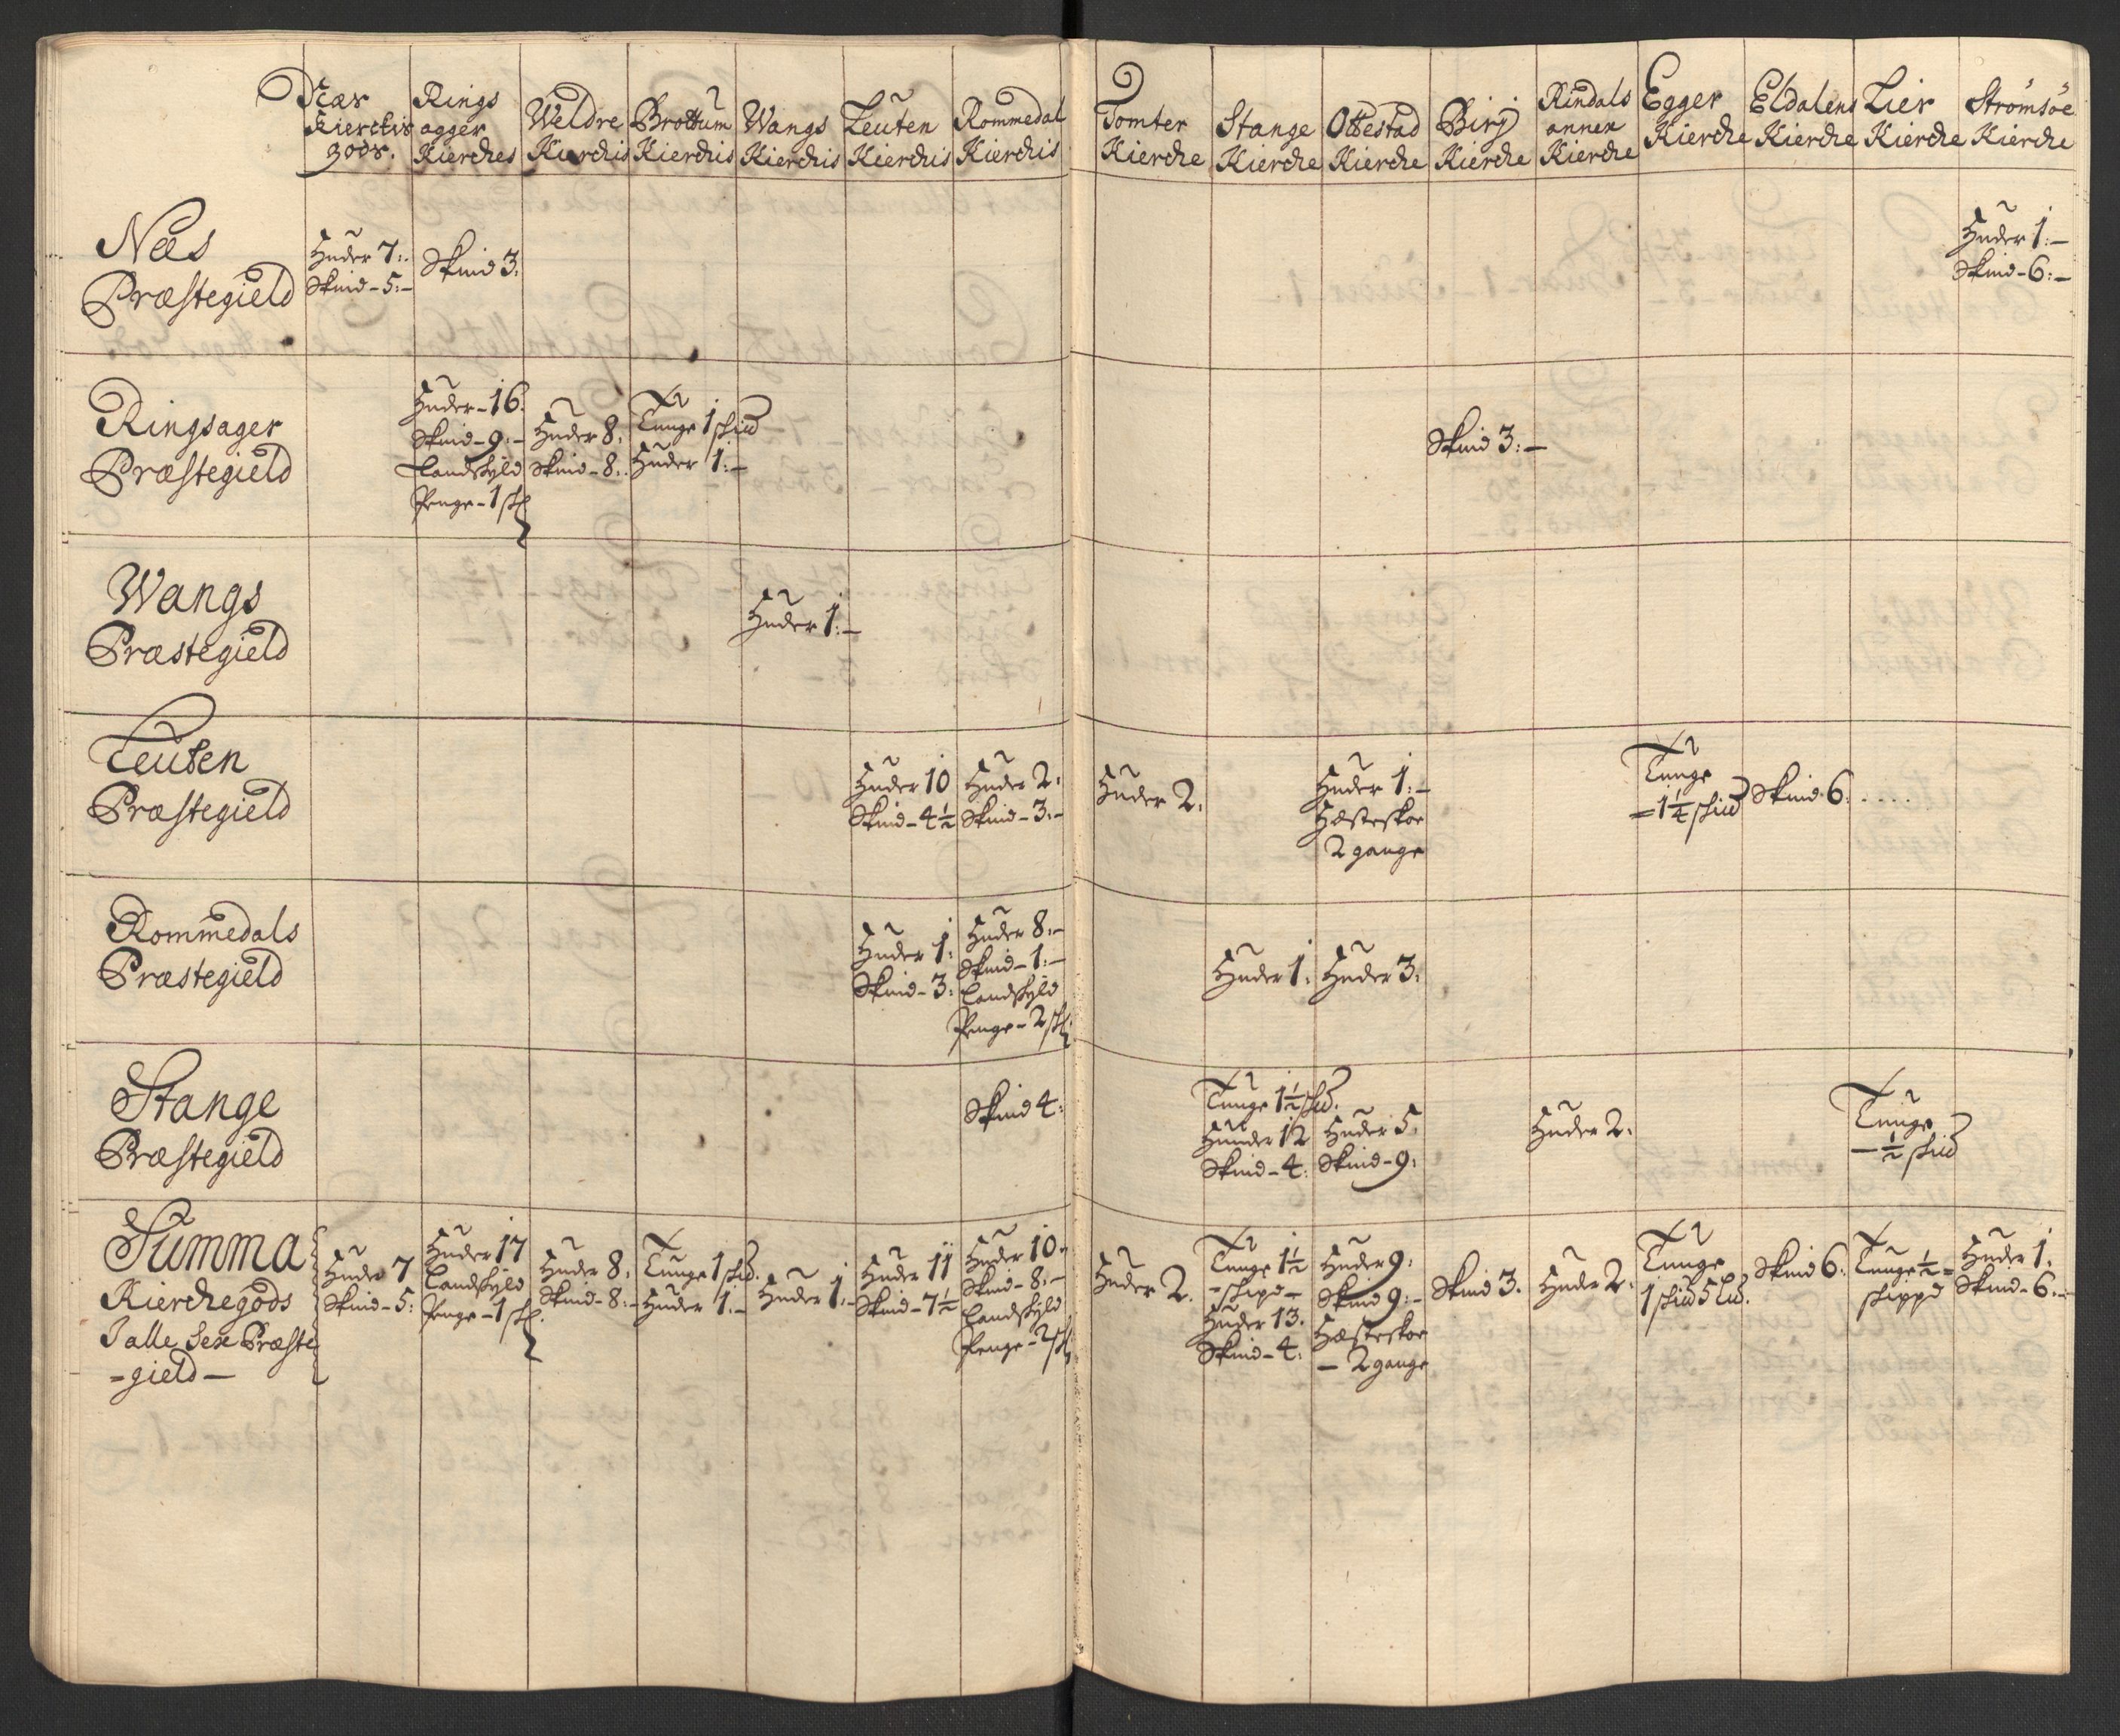 Næs
Kierckis
gods.
Rings
agger
Kierches
Weldre
Kierchis
Brottum
Kierchis
Wangs
Kierchis
Leuten
Kierchis
Rommedal
Kierchis
Tomter
Kierche
Stange
Kierche
Ottestad
Kierche
Birj
Kierche
Rindals
annex
Kierche
Egger
Kierche
Eldalens
Kierche
Lier
Kierche
Strömsöe
Kierche
Næs
Præstegield
Huder 7:-
Skind - 5:-
Skind 3:
Huder 1:-
Skind - 6:-
Ringsager
Præstegield
Huder - 16.
Skind - 9:-
Landskyld
Penge - 1 ß
Huder 8:
Skind - 8:
Tunge 1 skud
Huder 1:-
Skind 3:-
Wangs
Præstegield
Huder 1:-
Leuten
Præstegield
Huder 10
Skind - 4½
Huder 2:
Skind - 3:-
Huder 2:
Huder 1:-
Hæsteskoe
2 gange
Tunge
=1¼ skud
Skind 6:....
Rommedals
Præstegield
Huder 1:
Skind - 3:
Huder 8:-
Skind - 1:-
Landskyld
Penge - 2 ß
Huder 1:
Huder 3:
Stange
Præstegield
Skind 4:
Tunge 1½ skud.
Hunder 12
Skind - 4:
Huder 5:
Skind - 9:
Huder 2:
Tunge
- ½ skud
Summa
Kierchegods
J alle Sex Præste
-gield-
Huder 7
Skind - 5:
Huder 17
Landskyld
Penge - 1 ß.
Huder 8:
Skind - 8:-
Tunge 1 skud.
Huder 1:-
Huder 1:-
Huder 11
Skind - 7½
Huder 10:
Skind - 8:-
Landskyld
Penge - 2 ß
Huder 2.
Tunge 1½
- skipd -
Huder 13.
Skind - 4:
Huder 9:
Skind 9:-
Hæsteskoe
- 2 gange
Skind 3.
Huder 2:
Tunge
1 skud 5 Lud.
Skind 6:
Tunge ½=
skippd
Huder 1.
Skind - 6:-